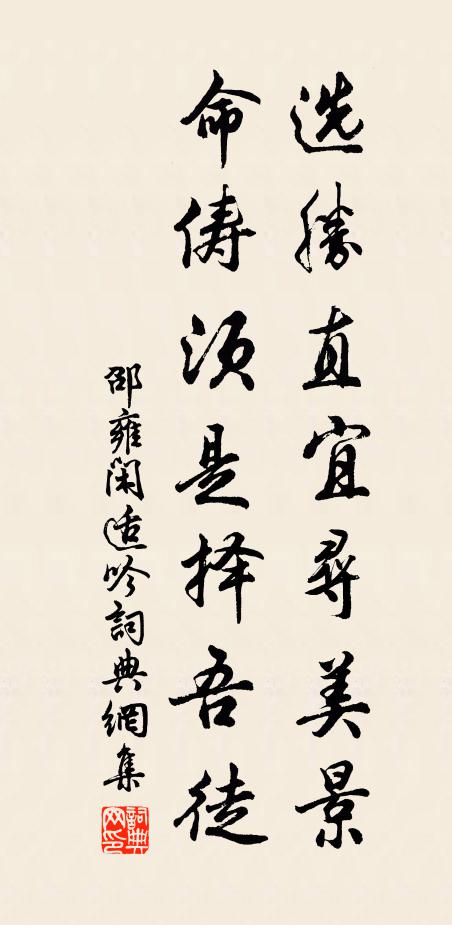 选勝直宜尋美景
命俦须是择吾徒
邵雍闲适吟詞典網集
詞典网印